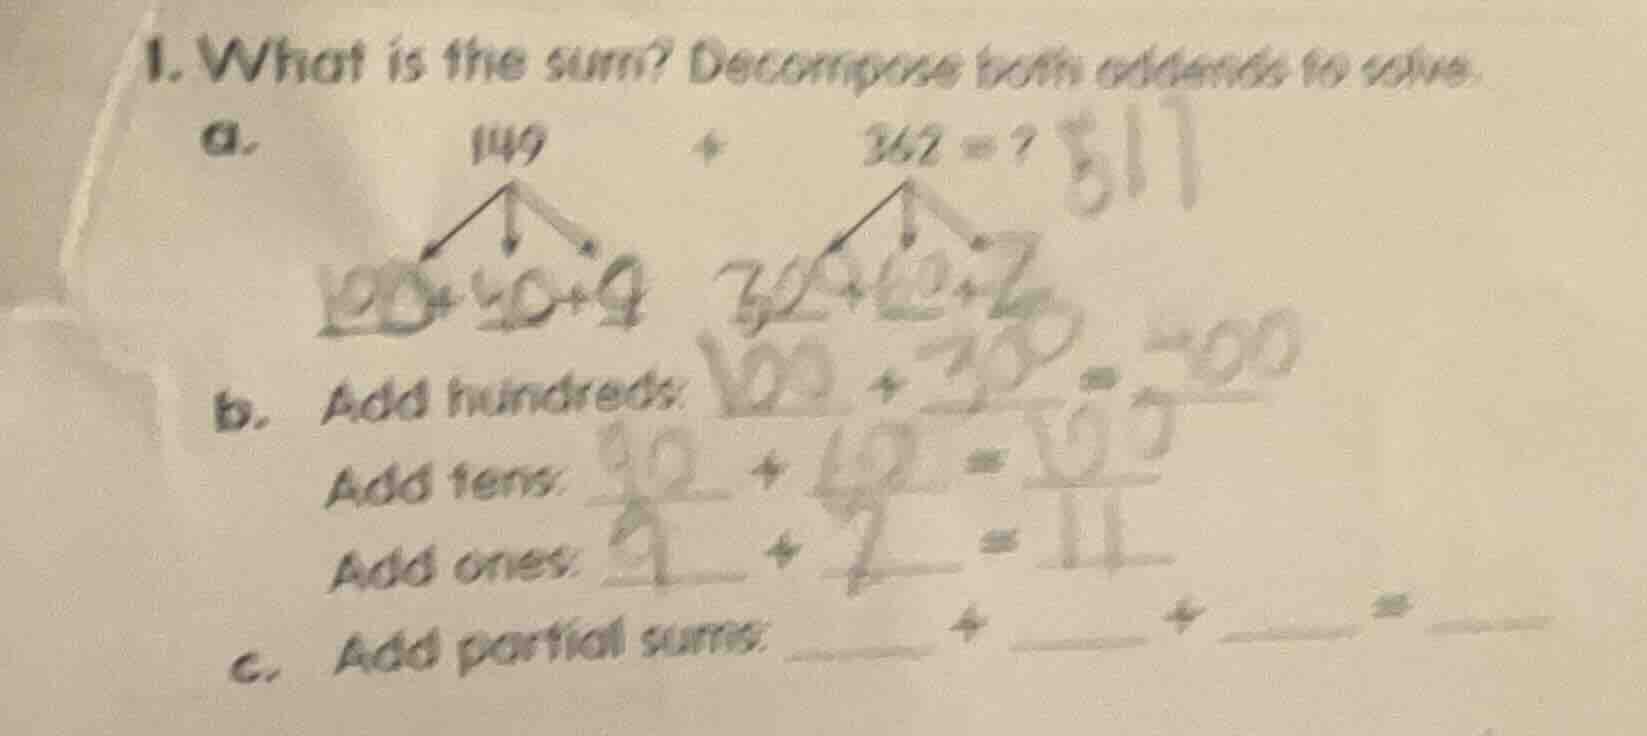 1. What is the sum? Decompose both addends to solve.
a. 149 + 362 = ? 511
100 + 40 + 9 300 + 60 + 2
b. Add hundreds: 100 + 300 = 400
Add tens: 40 + 60 = 100
Add ones: 9 + 2 = 11
c. Add partial sums: ____ + ____ + ____ = ____